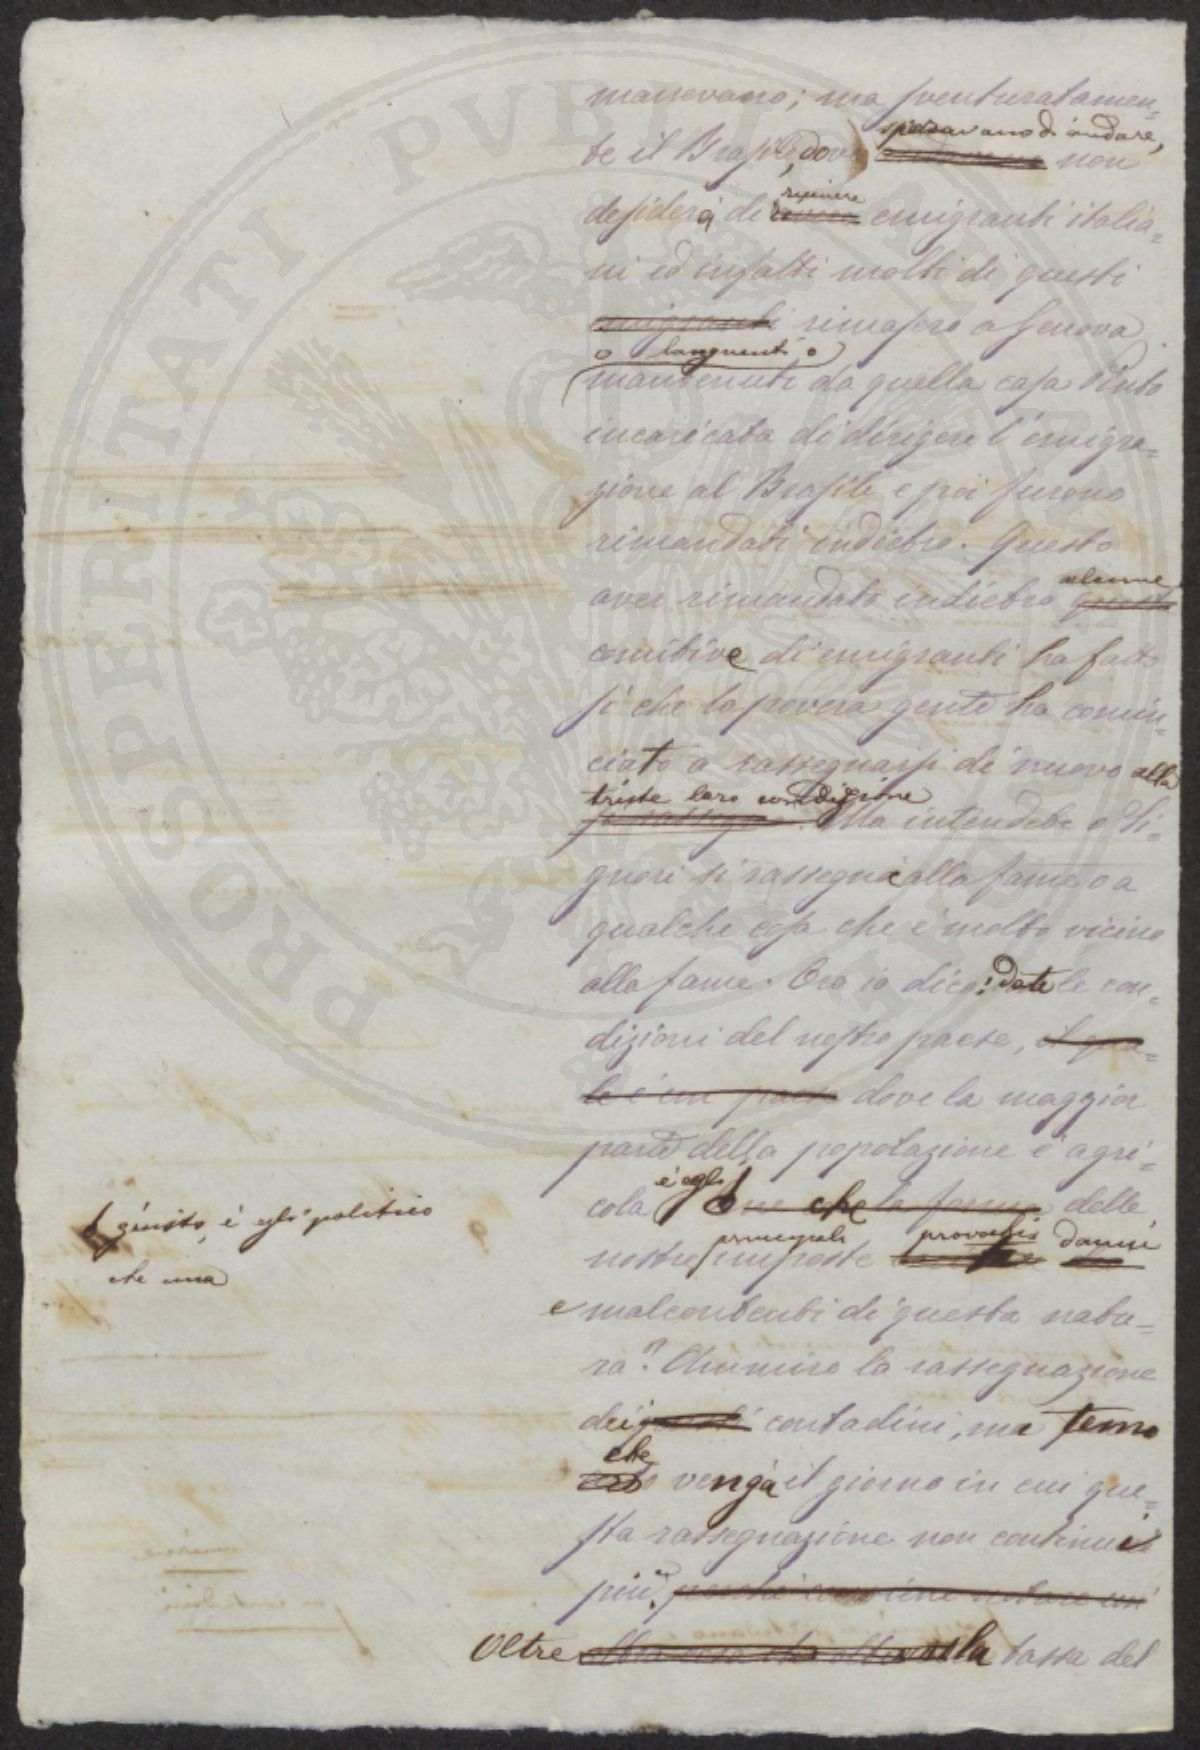 PROSPERITATI PVBLICAE
mancavano; ma sventuratamen-
te il Brasile, dove speravano di andare, non
desidera di ricevere emigranti italia-
ni ed infatti molti di questi
emigranti rimasero a Genova
o languenti o
mantenuti da quella casa Pinto
incaricata di dirigere l'emigra-
zione al Brasile e poi furono
rimandati indietro. Questo
aver rimandato indietro alcune
comitive di emigranti ha fatto
sì che la povera gente ha comin-
ciato a rassegnarsi di nuovo alla
triste loro condizione
. Ma intendete o Si-
gnori si rassegna alla fame o a
qualche cosa che è molto vicino
alla fame. Ora io dico: date le con-
dizioni del nostro paese, il qua-
le è un paese dove la maggior
parte della popolazione è agri-
cola è egli che la forma delle
giusto, è egli politico
che una
nostre principali imposte provochi danni
e malcontenti di questa natu-
ra? Ammiro la rassegnazione
dei questi contadini, ma temo
che venga il giorno in cui que-
sta rassegnazione non continui
più, perché conviene notare un'
Oltre altra cosa che oltre alla tassa del